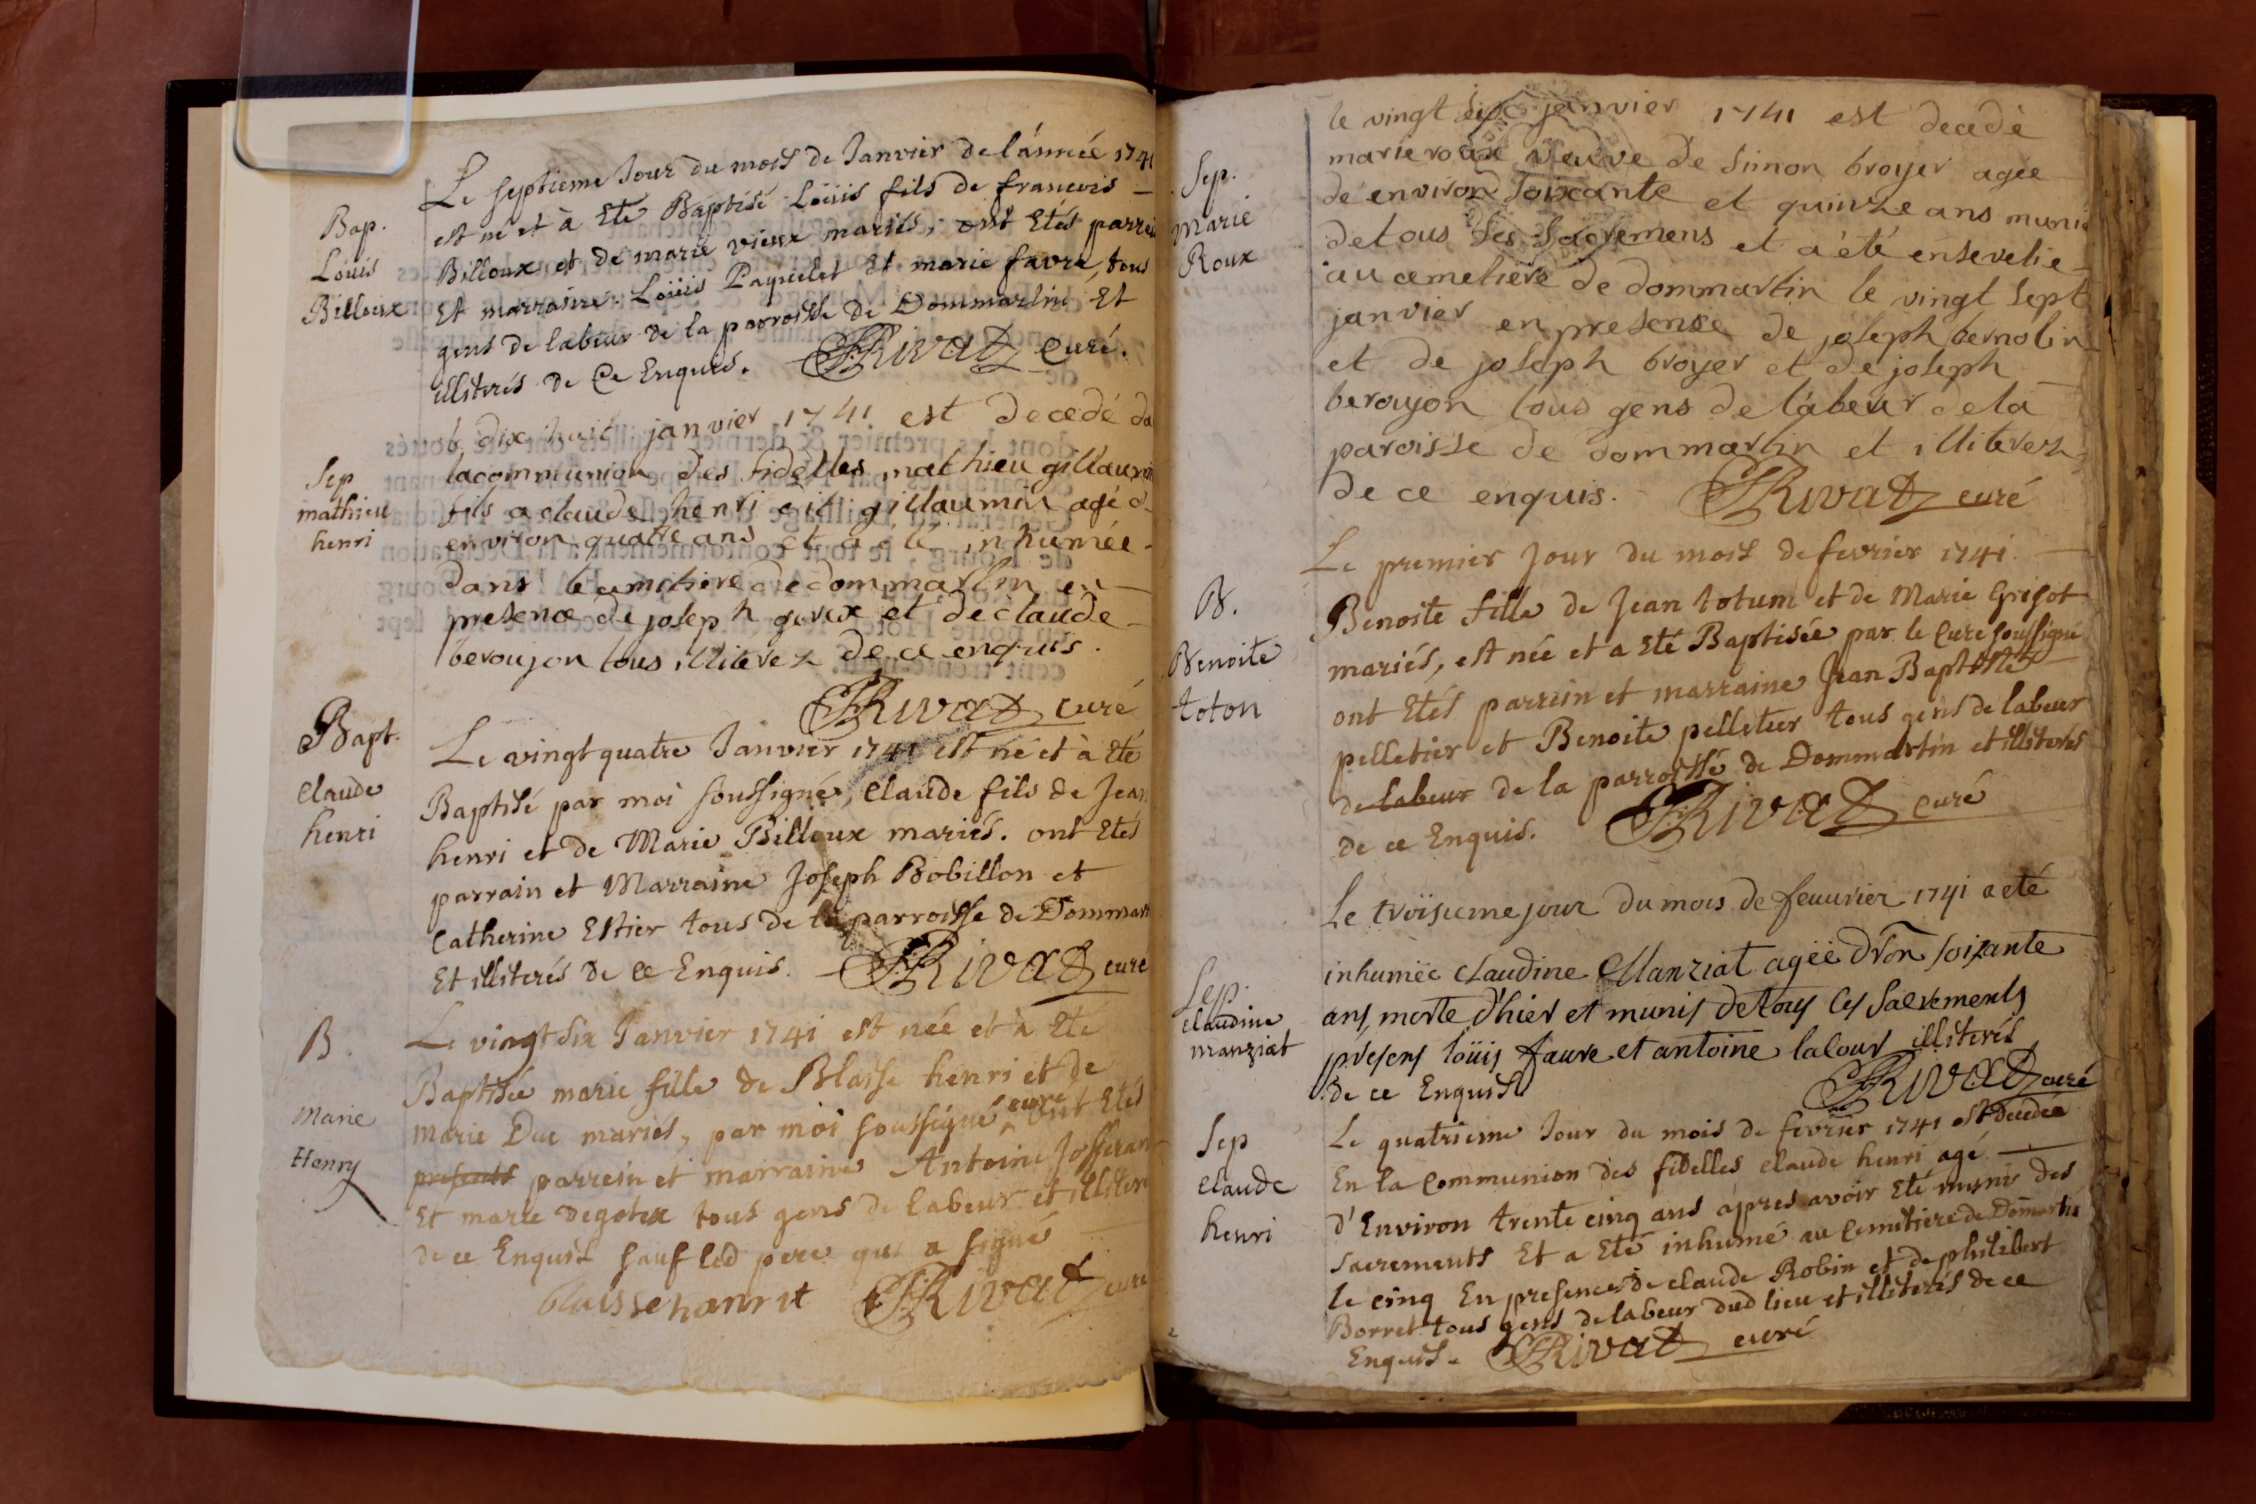 Bap.
Loüis
Billoux
Le septieme Jour du mois de Janvier de l'année 1741
est né et à Eté Baptisé Loüis fils de francois
Billoux et de marie vieux mariés, ont Etés parrein
Et marraine Loüis Paquelet Et marie favre, tous
gens de labeur de la parroisse de Dommartin Et
illiterés de Ce Enquis. Rivat Curé.
Sep
mathieu
henri
le dix huit janvier 1741 est decedé da
la communion des fidelles mathieu gillaumin
fils a claude henri dit gillaumin agé d
environ quatre ans et a eté inhumée
dans le cemetiere de dommartin en
presence de joseph goux et de claude
beroujon tous illiterez de ce enquis.
Rivat curé
Bapt.
Claude
henri
Le vingt quatre Janvier 1741 est né et à Eté
Baptisé par moi soussigné, Claude fils de Jean
henri et de Marie Billoux mariés. ont Etés
parrain et Marraine Joseph Bobillon et
Catherine Estier tous de la parroisse de Dommart
Et illiterés de Ce Enquis. Rivat curé
B.
Marie
Henry
Le vingt Six Janvier 1741 est née et à Eté
Baptisée marie fille de Blaisse henri et de
marie Duc mariés, par moi soussigné curé ont Etés
presents parrein et marraine Antoine Josseran
Et marie degotex tous gens de labeur et illiteré
de ce Enquis sauf led pere qui a signé
blaisse hanrit Rivat curé
Sep.
Marie
Roux
le vingt six janvier 1741 est decedé
marie roux veuve de simon broyer agée
de environ soixante et quinze ans munie
de tous ses sacremens et a été ensevelie
au cemetiere de dommartin le vingt sept
janvier en presense de joseph bernolin
et de joseph broyer et de joseph
beroujon tous gens de labeur de la
paroisse de dommartin et illiterez
de ce enquis. Rivat curé
B.
Benoite
toton
Le premier Jour du mois de fevrier 1741.
Benoite fille de Jean totum et de Marie Grigot
mariés, est née et a Eté Baptisée par le Curé soussigné
ont Etés parrein et marraine Jean Baptiste
pelletier et Benoite pelletier tous gens de labeur
de labeur de la parroisse de Dommartin et illiterés
de ce Enquis. Rivat curé
Sep.
Claudine
manziat
Le troisieme jour du mois de feuurier 1741 a eté
inhumée claudine Manziat agée d'ron soixante
ans, morte d'hier et munis de tous les sacrements
presens loüis faure et antoine lalour illiterés
de ce Enquis Rivat curé
Sep
Claude
henri
Le quatrieme Jour du mois de fevrier 1741 est decedée
En la Communion des fidelles Claude henri agé
d'Environ trente cinq ans apres avoir Eté munis des
sacrements Et a Eté inhumé au Cemetiere de Domartin
le cinq En presences de claude Robin et de philibert
Borret tous gens de labeur dud lieu et illiterés de ce
Enquis. Rivat curé